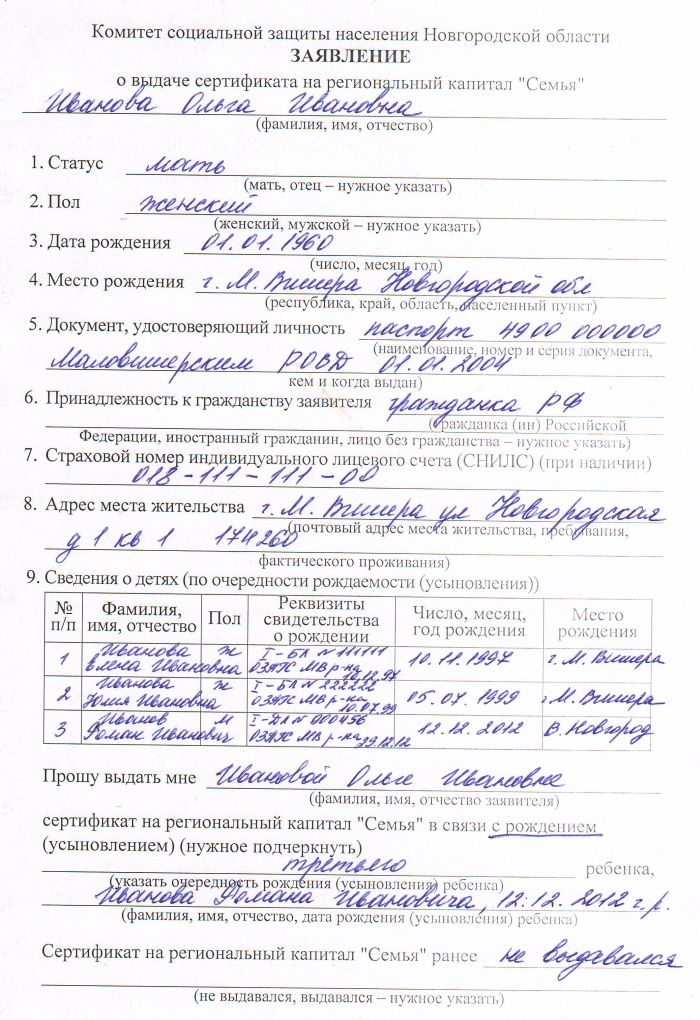 Комитет социальной защиты населения Новгородской области
ЗАЯВЛЕНИЕ
о выдаче сертификата на региональный капитал "Семья"
Иванова Ольга Ивановна
(фамилия, имя, отчество)
1. Статус мать
(мать, отец – нужное указать)
2. Пол женский
(женский, мужской – нужное указать)
3. Дата рождения 01.01.1960
(число, месяц, год)
4. Место рождения г. М. Вишера Новгородской обл
(республика, край, область, населенный пункт)
5. Документ, удостоверяющий личность паспорт 4900 000000
(наименование, номер и серия документа,
Маловишерским РОВД 01.01.2004
кем и когда выдан)
6. Принадлежность к гражданству заявителя гражданка РФ
(гражданка (ин) Российской
Федерации, иностранный гражданин, лицо без гражданства – нужное указать)
7. Страховой номер индивидуального лицевого счета (СНИЛС) (при наличии)
018-111-111-00
8. Адрес места жительства г. М. Вишера ул Новгородская
(почтовый адрес места жительства, пребывания,
д 1 кв 1 174260
фактического проживания)
9. Сведения о детях (по очередности рождаемости (усыновления))
№ п/п Фамилия, имя, отчество Пол Реквизиты свидетельства о рождении Число, месяц, год рождения Место рождения
1 Иванова Елена Ивановна ж I-БЛ № 111111 ОЗАГС МВ р-на 10.12.97 10.11.1997 г. М. Вишера
2 Иванова Юлия Ивановна ж I-БЛ № 222222 ОЗАГС МВ р-на 10.07.99 05.07.1999 г М. Вишера
3 Иванов Роман Иванович м I-ДЛ № 000456 ОЗАГС МВ р-на 29.12.12 12.12.2012 В. Новгород
Прошу выдать мне Ивановой Ольге Ивановне
(фамилия, имя, отчество заявителя)
сертификат на региональный капитал "Семья" в связи с рождением
(усыновлением) (нужное подчеркнуть)
третьего ребенка,
(указать очередность рождения (усыновления) ребенка)
Иванова Романа Ивановича, 12.12.2012 г.р.
(фамилия, имя, отчество, дата рождения (усыновления) ребенка)
Сертификат на региональный капитал "Семья" ранее не выдавался
(не выдавался, выдавался – нужное указать)